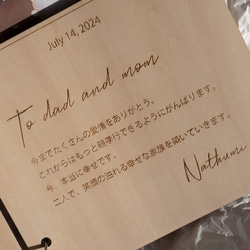 July 14, 2024
To dad and mom
今までたくさんの愛情をありがとう。
これからはもっと親孝行できるようにがんばります。
今、本当に幸せです。
二人で、笑顔の溢れる幸せな家族を築いていきます。
Nathumi